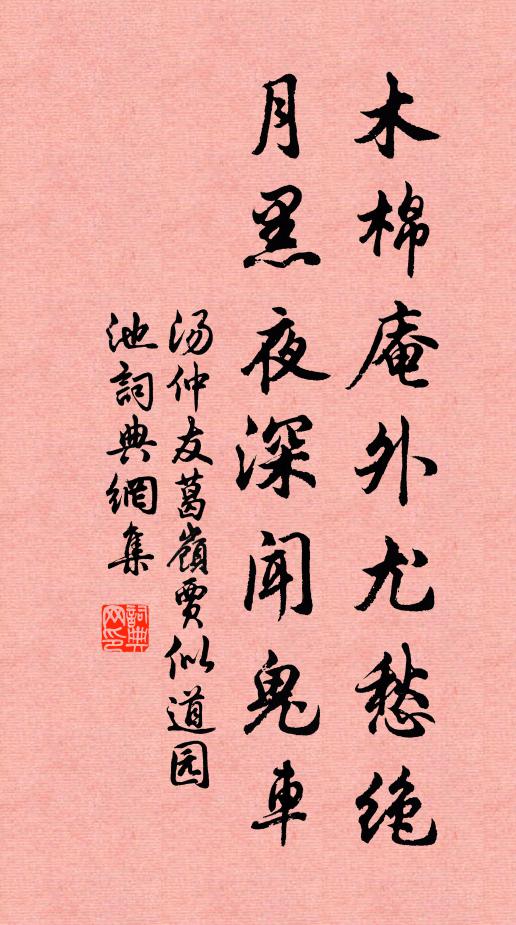 木棉庵外尤愁绝
月黑夜深闻鬼車
汤仲友葛嶺賈似道园
池詞典網集
詞典網印